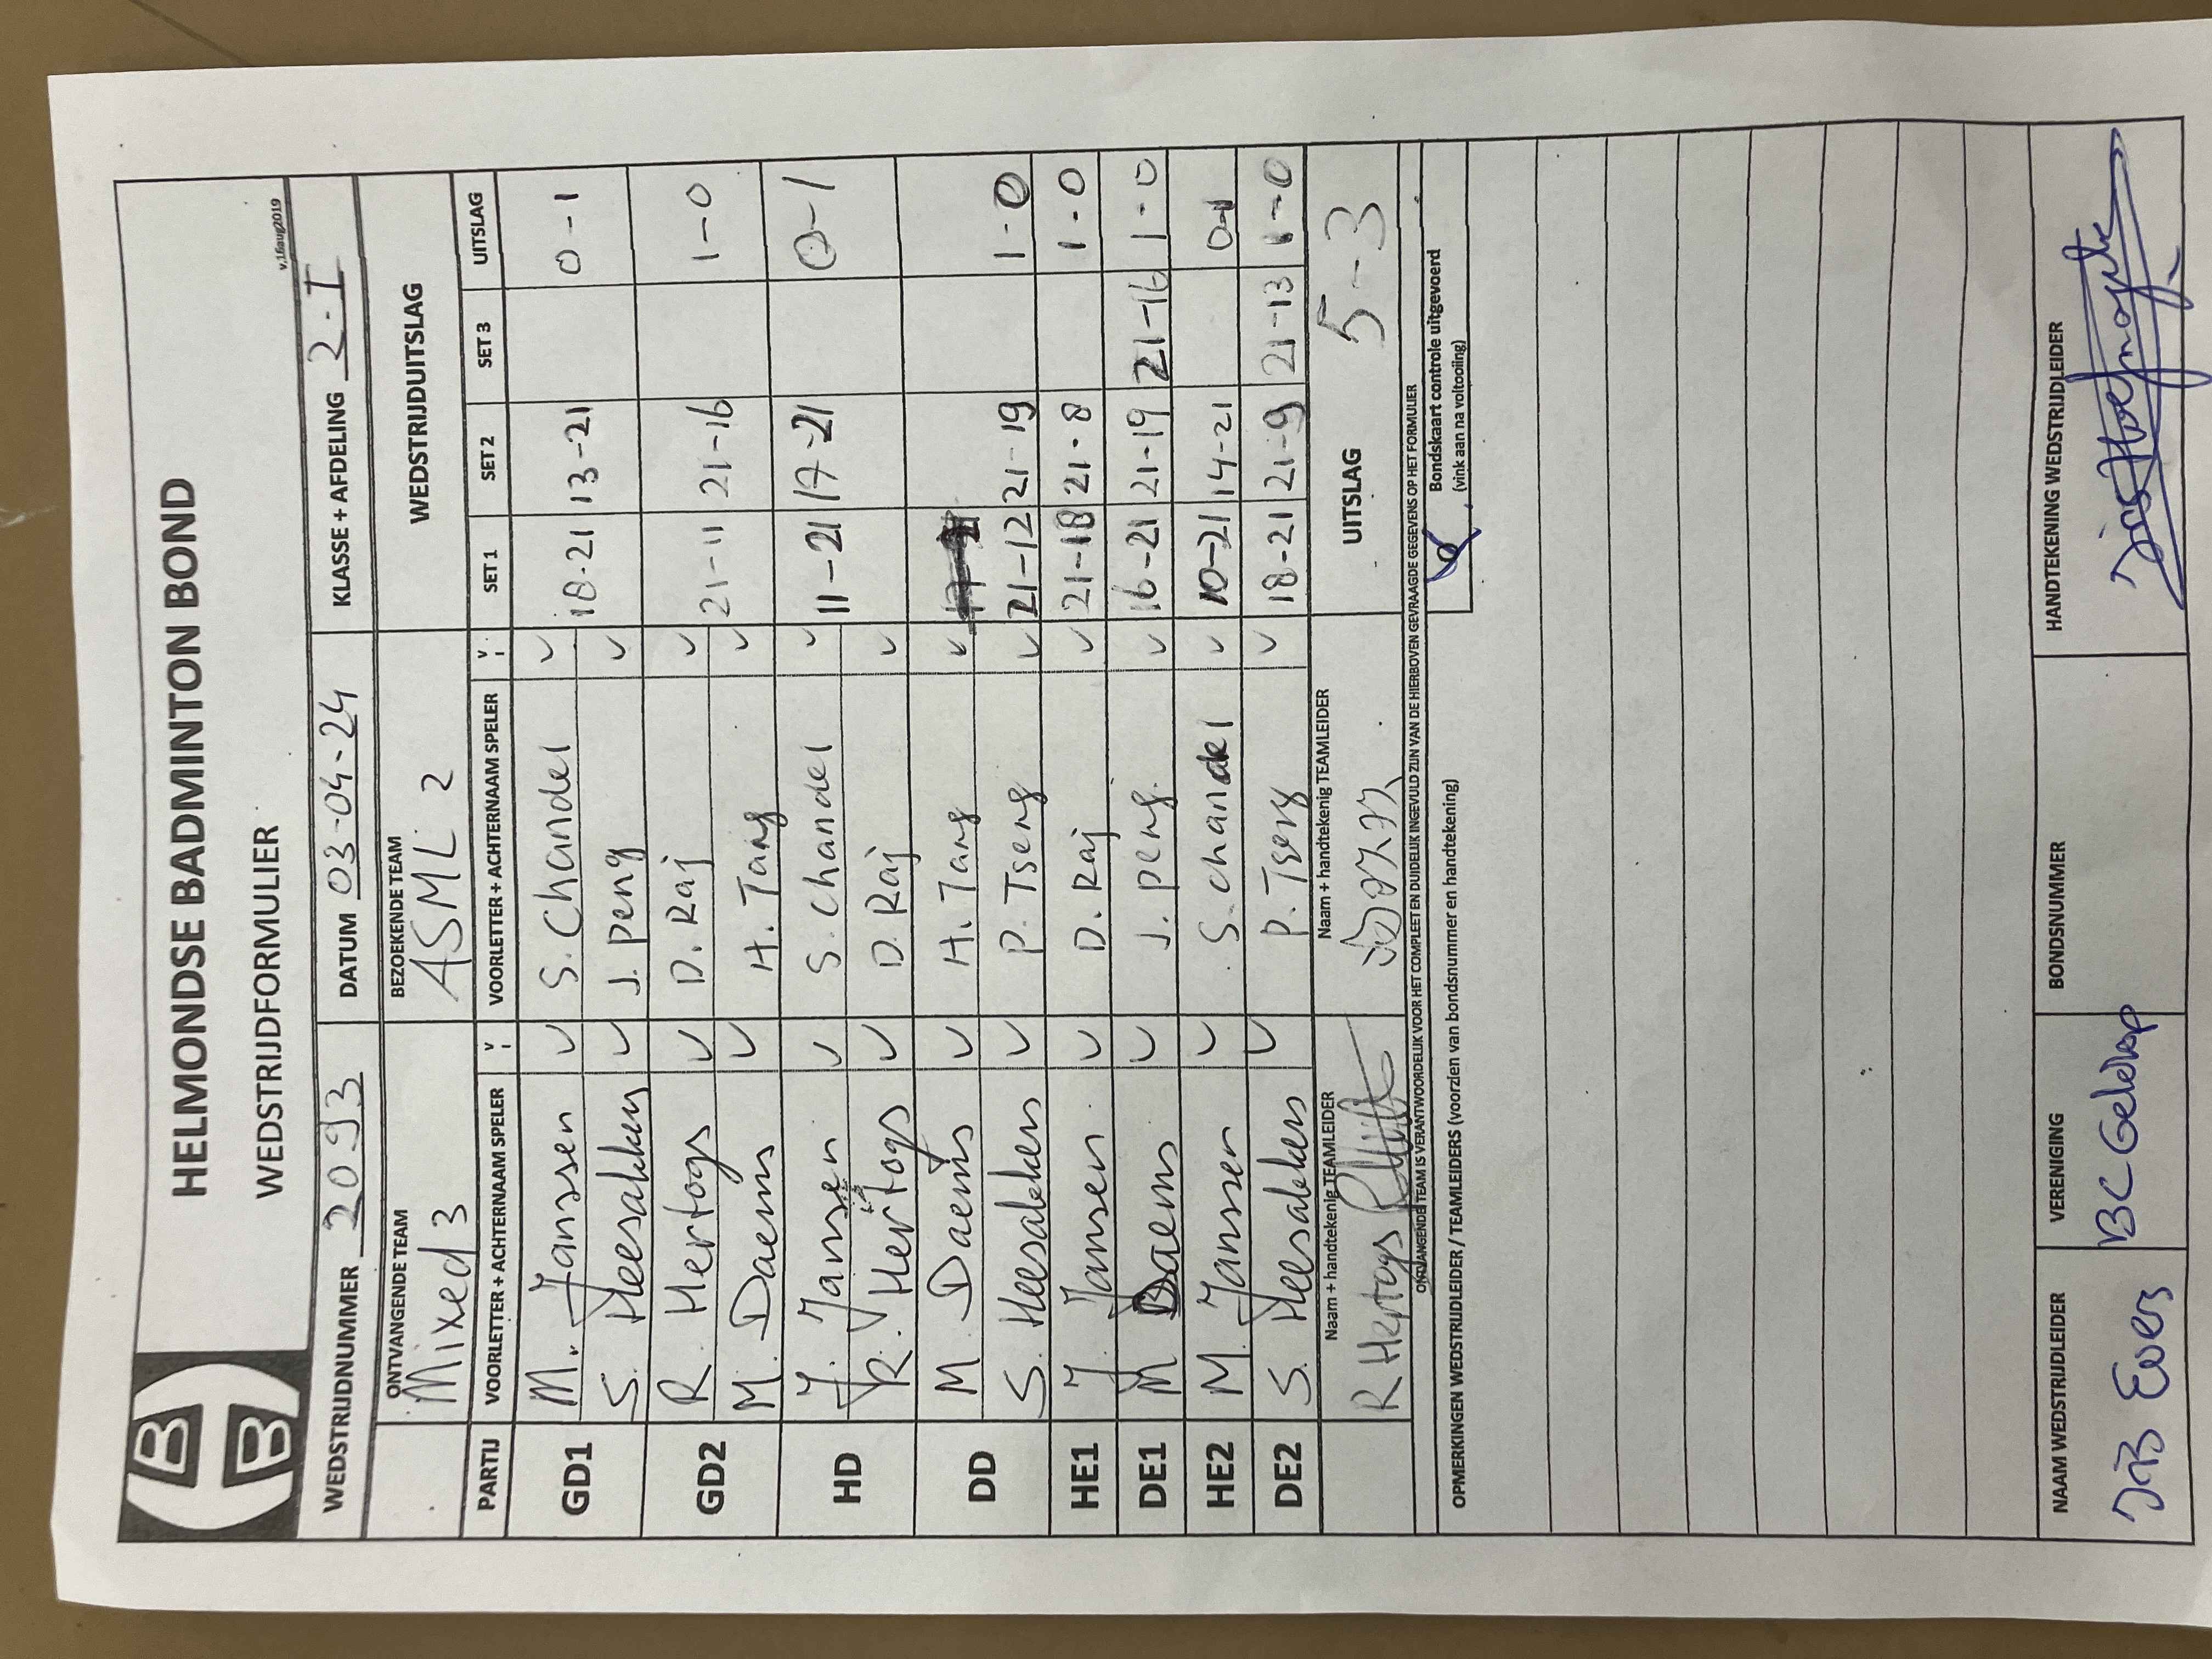 HELMONDSE BADMINTON BOND
WEDSTRIJDFORMULIER
v.16aug2019
WEDSTRIJDNUMMER 2093 DATUM 03-04-24 KLASSE + AFDELING 2-I
ONTVANGENDE TEAM BEZOEKENDE TEAM WEDSTRIJDUITSLAG
Mixed 3 ASML 2
PARTIJ VOORLETTER + ACHTERNAAM SPELER v VOORLETTER + ACHTERNAAM SPELER v SET 1 SET 2 SET 3 UITSLAG
GD1 M. Janssen v S. Chandel v 18-21 13-21 0-1
S. Heesakkers v J. Peng v
GD2 R. Hertogs v D. Raj v 21-11 21-16 1-0
M. Daems v H. Tang v
HD J. Jansen v S. Chandel v 11-21 17-21 0-1
R. Hertogs v D. Raj v
DD M. Daems v H. Tang v
S. Heesakkers v P. Tseng v 21-12 21-19 1-0
HE1 J. Jansen v D. Raj v 21-18 21-8 1-0
DE1 M Daems v J. Peng. v 16-21 21-19 21-16 1-0
HE2 M. Janssen v S. Chandel v 10-21 14-21 0-1
DE2 S. Heesakkers v P. Tseng v 18-21 21-9 21-13 1-0
Naam + handtekenig TEAMLEIDER Naam + handtekenig TEAMLEIDER UITSLAG 5-3
R Hertogs
ONTVANGENDE TEAM IS VERANTWOORDELIJK VOOR HET COMPLEET EN DUIDELIJK INGEVULD ZIJN VAN DE HIERBOVEN GEVRAAGDE GEGEVENS OP HET FORMULIER
Bondskaart controle uitgevoerd
(vink aan na voltooiing)
OPMERKINGEN WEDSTRIJDLEIDER / TEAMLEIDERS (voorzien van bondsnummer en handtekening)
NAAM WEDSTRIJDLEIDER VERENIGING BONDSNUMMER HANDTEKENING WEDSTRIJDLEIDER
Evers BC Geldrop